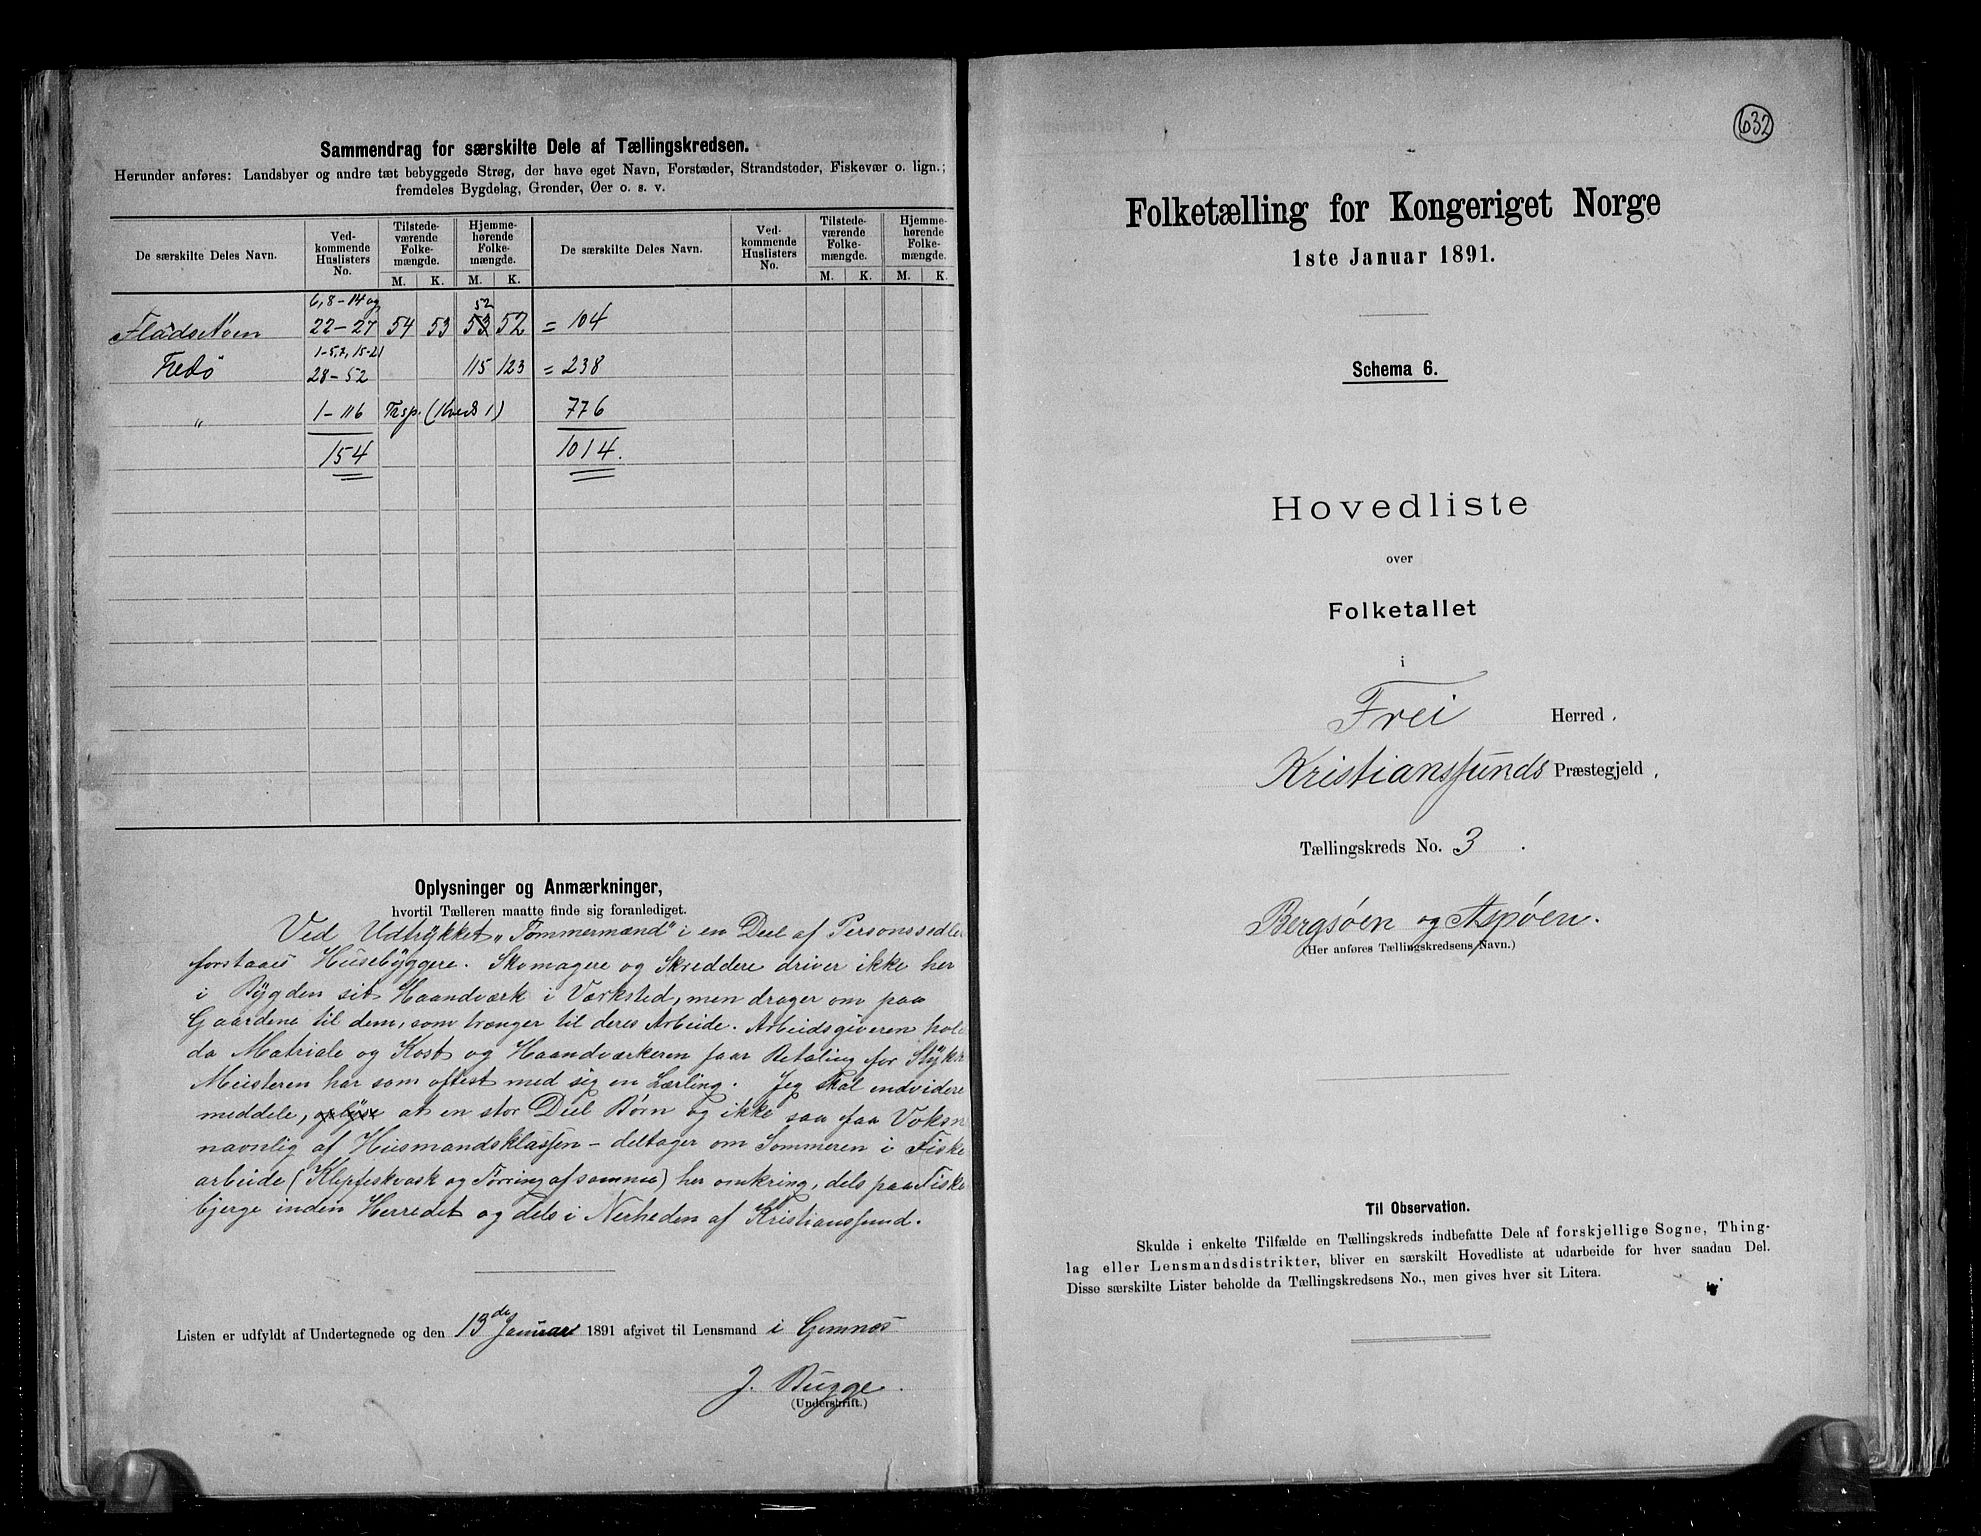 Sammendrag for særskilte Dele af Tællingskredsen.
Herunder anføres: Landsbyer og andre tæt bebyggede Strøg, der have eget Navn, Forstæder, Strandsteder, Fiskevær o. lign.;
fremdeles Bygdelag, Grender, Øer o. s. v.
De særskilte Deles Navn.
Ved-
kommende
Huslisters
No.
Tilstede-
værende
Folke-
mængde.
M. K.
Hjemme-
hørende
Folke-
mængde.
M. K.
De særskilte Deles Navn.
Ved-
kommende
Huslisters
No.
Tilstede-
værende
Folke-
mængde.
M. K.
Hjemme-
hørende
Folke-
mængde.
M. K.
6, 8-14 og 52
22-27 54 53 53 52 = 104
1-5, 7, 15-21
Fredø 28-52 115 123 = 238
„ 1-116 Trsp. (Kreds 1) 776
154 1014.
Oplysninger og Anmærkninger,
hvortil Tælleren maatte finde sig foranlediget.
Ved Udtrykket „Tømmermænd" i en Deel af Personssedle
forstaaes Husebyggere. Skomagere og Skreddere driver ikke her
i Bygden sit Haandværk i Værksted, men drager om paa
Gaardene til dem, som trænger til deres Arbeide. Arbeidsgiveren hol
da Matriale og Kost og Haandværkeren faar Betaling for Stykk
Mesteren har som oftest med sig en Lærling. Jeg skal endvidere
meddele, oplyse at en stor Deel Børn og ikke saa faa Voksn
navnlig af Husmandsklassen – deltager om Sommeren i Fiske
arbeide (Klipfiskvask og Tørring af samme) her omkring, dels paa Fiske
bjerge inden Herredet og dels i Nærheden af Kristianssund.
Listen er udfyldt af Undertegnede og den 13de Januar 1891 afgivet til Lensmand i Gimnæs
J. Bugge.
(Underskrift.)
632
Folketælling for Kongeriget Norge
1ste Januar 1891.
Schema 6.
Hovedliste
over
Folketallet
i
Frei Herred.
Kristianssunds Præstegjeld.
Tællingskreds No. 3.
Bergsøen og Aspøen.
(Her anføres Tællingskredsens Navn.)
Til Observation.
Skulde i enkelte Tilfælde en Tællingskreds indbefatte Dele af forskjellige Sogne, Thing-
lag eller Lensmandsdistrikter, bliver en særskilt Hovedliste at udarbeide for hver saadan Del.
Disse særskilte Lister beholde da Tællingskredsens No., men gives hver sit Litera.